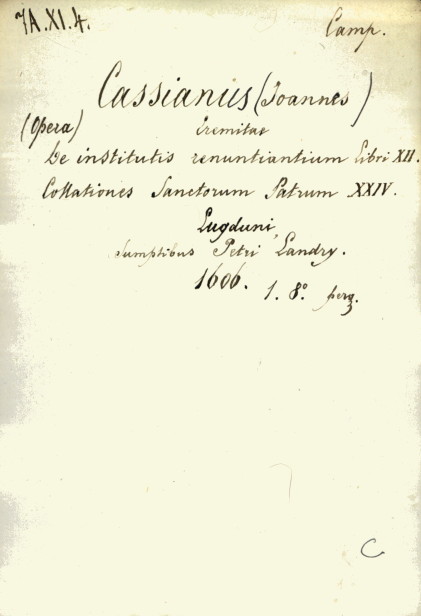 7A.XI.4. Camp.
Cassianus (Joannes)
(Opera) Eremitae
De institutis renuntiantium Libri XII.
Collationes Sanctorum Patrum XXIV.
Lugduni,
Sumptibus Petri Landry.
1606. 1. 8º. perg.
C